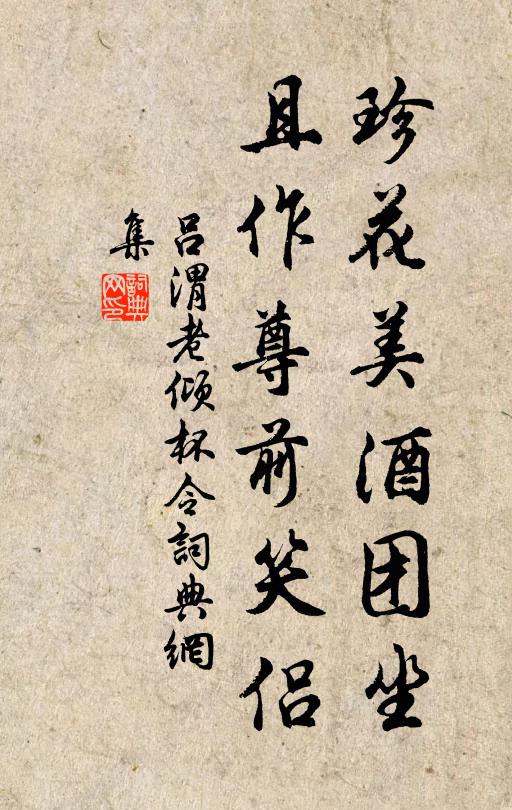 珍花美酒团坐
且作尊前笑侣
吕渭老倾杯令詞典網
集
詞典
网印